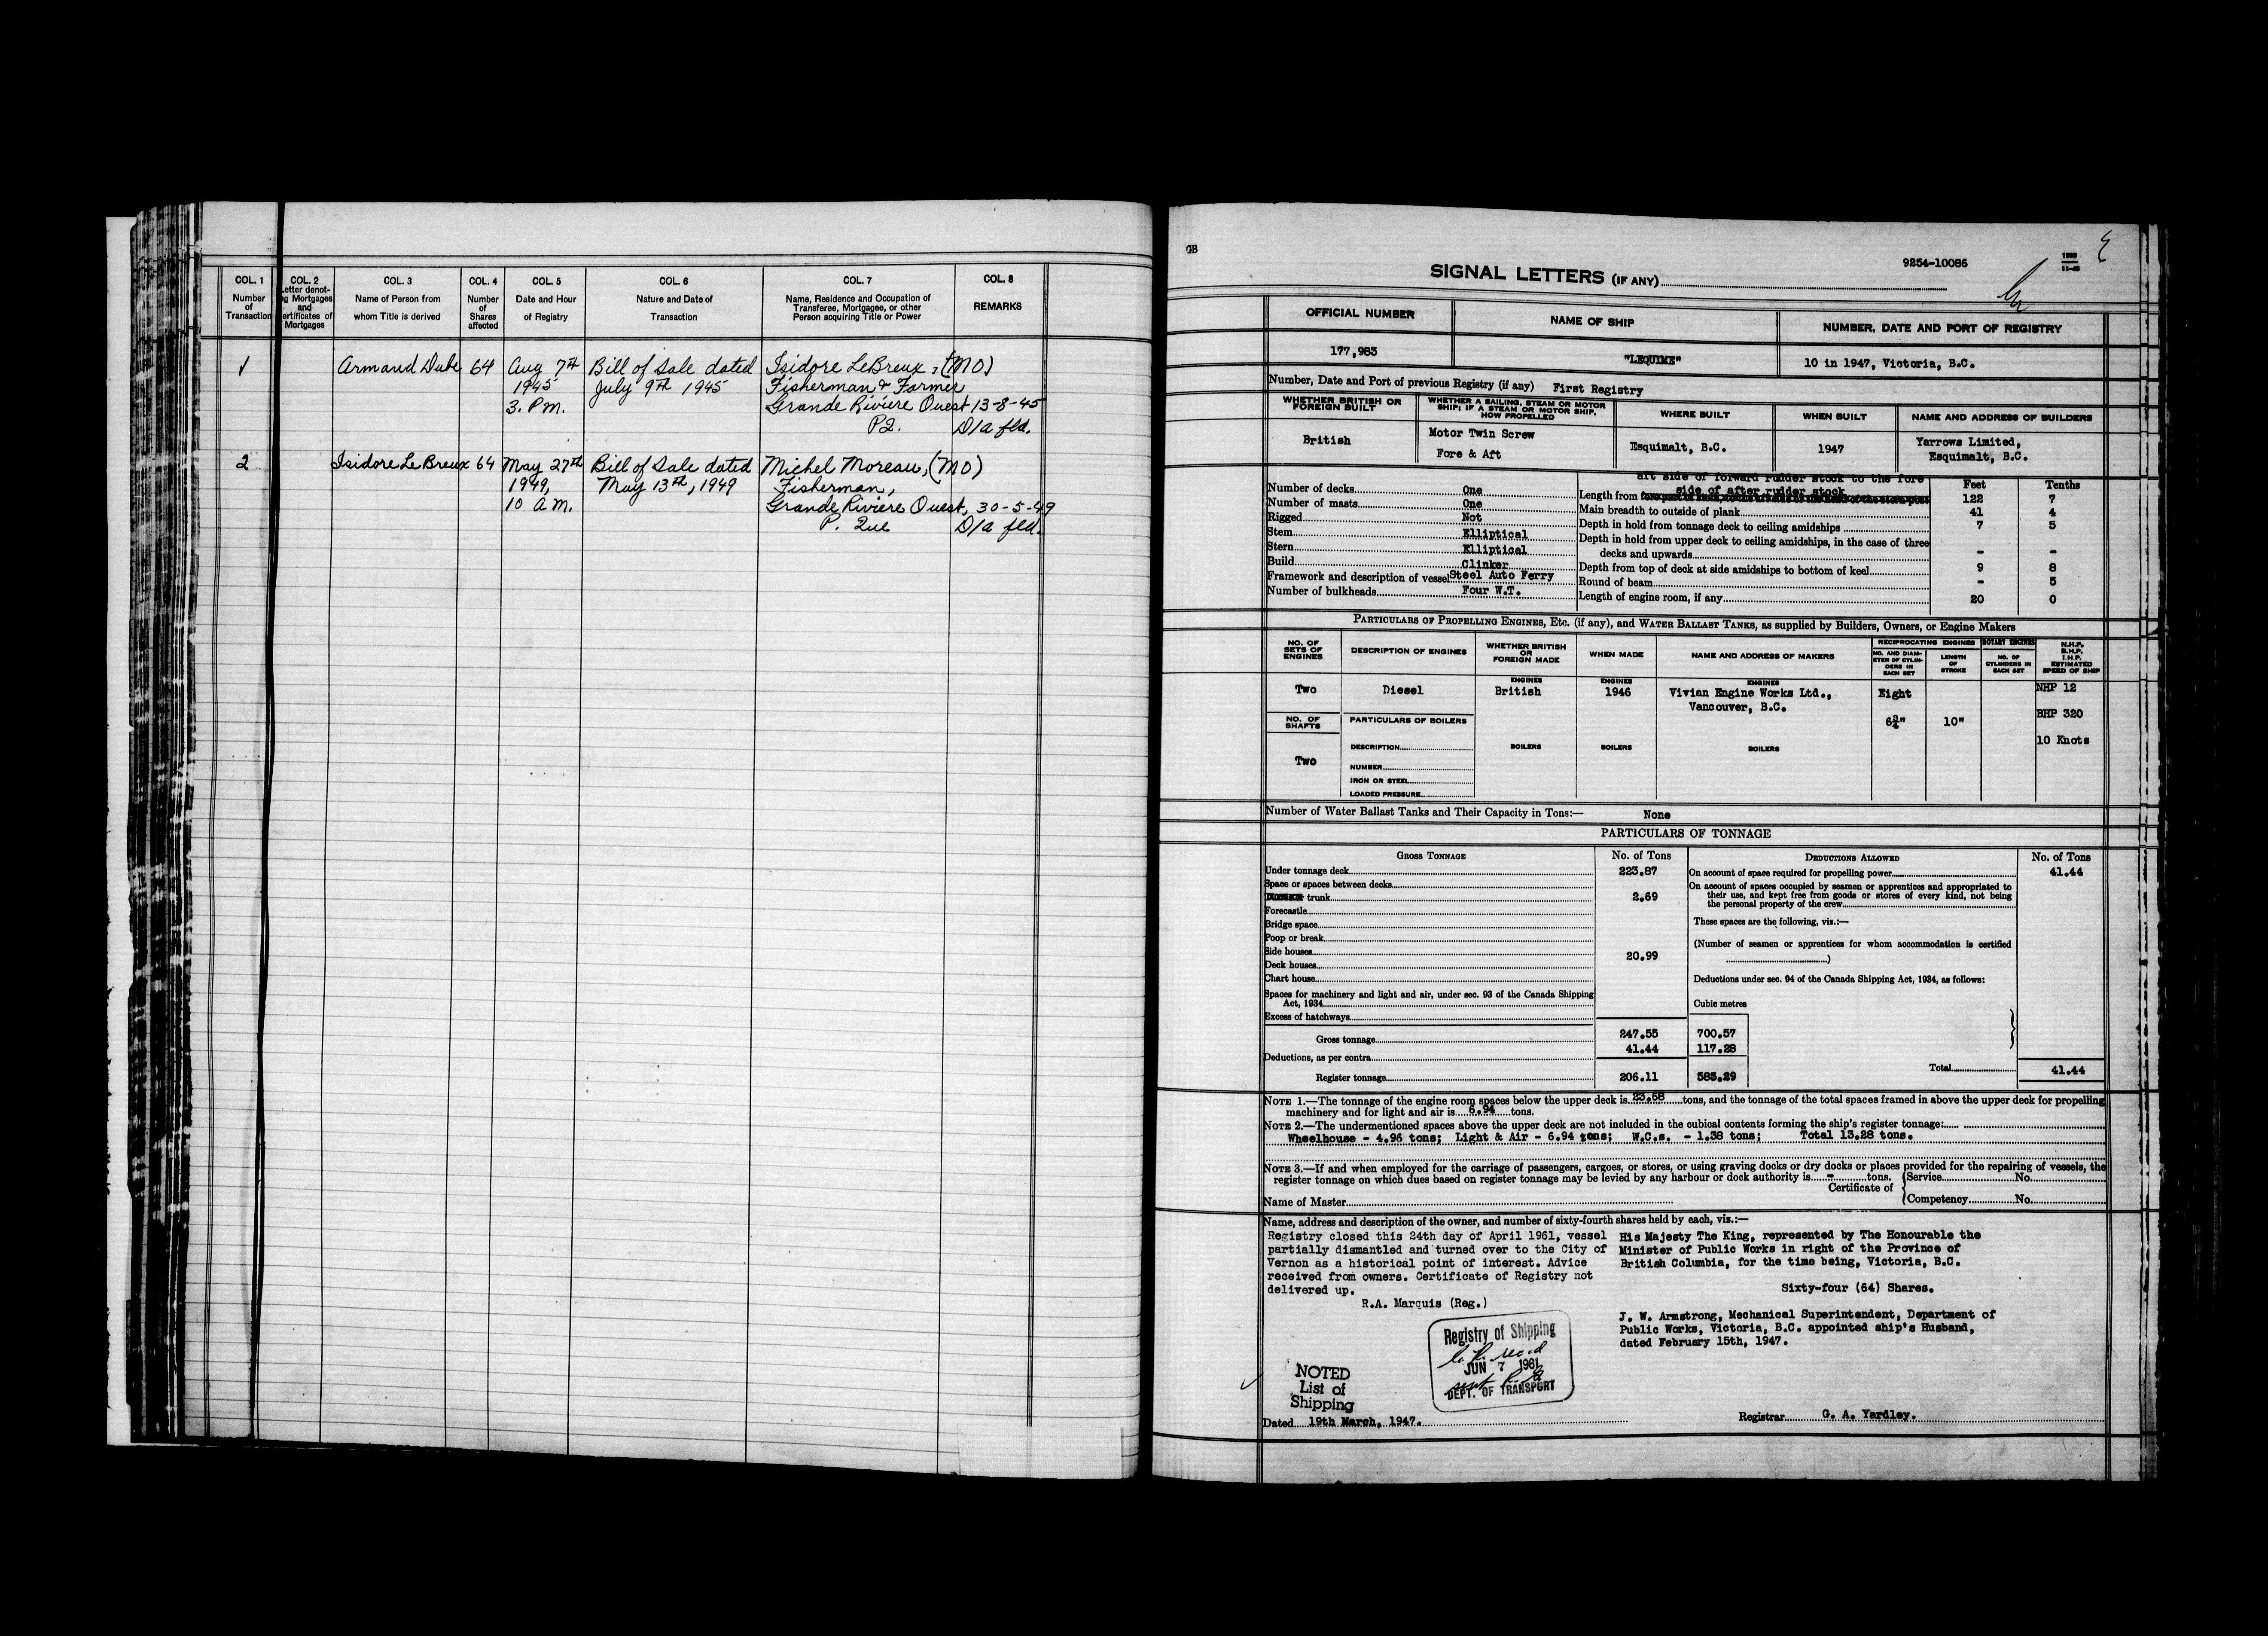 COL. 1 COL. 2 COL. 3 COL. 4 COL. 5 COL. 6 COL. 7 COL. 8
Number of Transaction
Letter denoting Mortgages and Certificates of Mortgages
Name of Person from whom Title is derived
Number of Shares affected
Date and Hour of Registry
Nature and Date of Transaction
Name, Residence and Occupation of Transferee, Mortgagee, or other Person acquiring Title or Power
REMARKS
1 Armand Dube 64 Aug 7th Bill of Sale dated Isidore LeBreux, (MO)
1945 July 9th 1945 Fisherman & Farmer
3. P.m. Grande Riviere Ouest 13-8-45
P.Q. D/a fld.
2 Isidore LeBreux 64 May 27th Bill of Sale dated Michel Moreau, (MO)
1949, May 13th, 1949 Fisherman,
10 A.M. Grande Riviere Ouest, 30-5-49
P. Que D/a fld.
GB
9254-10086
SIGNAL LETTERS (IF ANY)
OFFICIAL NUMBER NAME OF SHIP NUMBER, DATE AND PORT OF REGISTRY
177,983 "LEQUIME" 10 in 1947, Victoria, B.C.
Number, Date and Port of previous Registry (if any) First Registry
WHETHER BRITISH OR FOREIGN BUILT
WHETHER A SAILING, STEAM OR MOTOR SHIP; IF A STEAM OR MOTOR SHIP, HOW PROPELLED
WHERE BUILT WHEN BUILT NAME AND ADDRESS OF BUILDERS
British Motor Twin Screw Esquimalt, B.C. 1947 Yarrows Limited,
Fore & Aft Esquimalt, B.C.
Number of decks One
Number of masts One
Rigged Not
Stem Elliptical
Stern Elliptical
Build Clinker
Framework and description of vessel Steel Auto Ferry
Number of bulkheads Four W.T.
Feet Tenths
aft side of forward rudder stock to the fore
side of after rudder stock
Length from 122 7
Main breadth to outside of plank 41 4
Depth in hold from tonnage deck to ceiling amidships 7 5
Depth in hold from upper deck to ceiling amidships, in the case of three
decks and upwards - -
Depth from top of deck at side amidships to bottom of keel 9 8
Round of beam - 5
Length of engine room, if any 20 0
PARTICULARS OF PROPELLING ENGINES, ETC. (if any), and WATER BALLAST TANKS, as supplied by Builders, Owners, or Engine Makers
NO. OF SETS OF ENGINES
DESCRIPTION OF ENGINES
WHETHER BRITISH OR FOREIGN MADE
WHEN MADE
NAME AND ADDRESS OF MAKERS
RECIPROCATING ENGINES ROTARY ENGINES
NO. AND DIAMETER OF CYLINDERS IN EACH SET
LENGTH OF STROKE
NO. OF CYLINDERS IN EACH SET
N.H.P. B.H.P. I.H.P. ESTIMATED SPEED OF SHIP
ENGINES ENGINES ENGINES
Two Diesel British 1946 Vivian Engine Works Ltd., Eight NHP 12
Vancouver, B.C.
NO. OF SHAFTS PARTICULARS OF BOILERS 6¾" 10" BHP 320
DESCRIPTION BOILERS BOILERS BOILERS 10 Knots
Two
NUMBER
IRON OR STEEL
LOADED PRESSURE
Number of Water Ballast Tanks and Their Capacity in Tons:— None
PARTICULARS OF TONNAGE
GROSS TONNAGE No. of Tons
Under tonnage deck 223.87
Space or spaces between decks
trunk 2.69
Forecastle
Bridge space
Poop or break
Side houses 20.99
Deck houses
Chart house
Spaces for machinery and light and air, under sec. 93 of the Canada Shipping
Act, 1934
Excess of hatchways
Gross tonnage 247.55 700.57
Deductions, as per contra 41.44 117.28
Register tonnage 206.11 583.29
DEDUCTIONS ALLOWED No. of Tons
On account of space required for propelling power 41.44
On account of spaces occupied by seamen or apprentices and appropriated to
their use, and kept free from goods or stores of every kind, not being
the personal property of the crew
These spaces are the following, viz.:—
(Number of seamen or apprentices for whom accommodation is certified
)
Deductions under sec. 94 of the Canada Shipping Act, 1934, as follows:
Cubic metres
Total 41.44
NOTE 1.—The tonnage of the engine room spaces below the upper deck is 23.68 tons, and the tonnage of the total spaces framed in above the upper deck for propelling
machinery and for light and air is 6.94 tons.
NOTE 2.—The undermentioned spaces above the upper deck are not included in the cubical contents forming the ship's register tonnage:
Wheelhouse - 4.96 tons; Light & Air - 6.94 tons; W.C.s. - 1.38 tons; Total 13.28 tons.
NOTE 3.—If and when employed for the carriage of passengers, cargoes, or stores, or using graving docks or dry docks or places provided for the repairing of vessels, the
register tonnage on which dues based on register tonnage may be levied by any harbour or dock authority is - tons.
Certificate of { Service No.
Competency No.
Name of Master
Name, address and description of the owner, and number of sixty-fourth shares held by each, viz.:—
Registry closed this 24th day of April 1961, vessel
partially dismantled and turned over to the City of
Vernon as a historical point of interest. Advice
received from owners. Certificate of Registry not
delivered up.
R.A. Marquis (Reg.)
His Majesty The King, represented by The Honourable the
Minister of Public Works in right of the Province of
British Columbia, for the time being, Victoria, B.C.
Sixty-four (64) Shares.
J. W. Armstrong, Mechanical Superintendent, Department of
Public Works, Victoria, B.C. appointed ship's Husband,
dated February 15th, 1947.
NOTED
List of
Shipping
Registry of Shipping
JUN 7 1961
DEPT. OF TRANSPORT
Dated 19th March, 1947. Registrar G. A. Yardley.